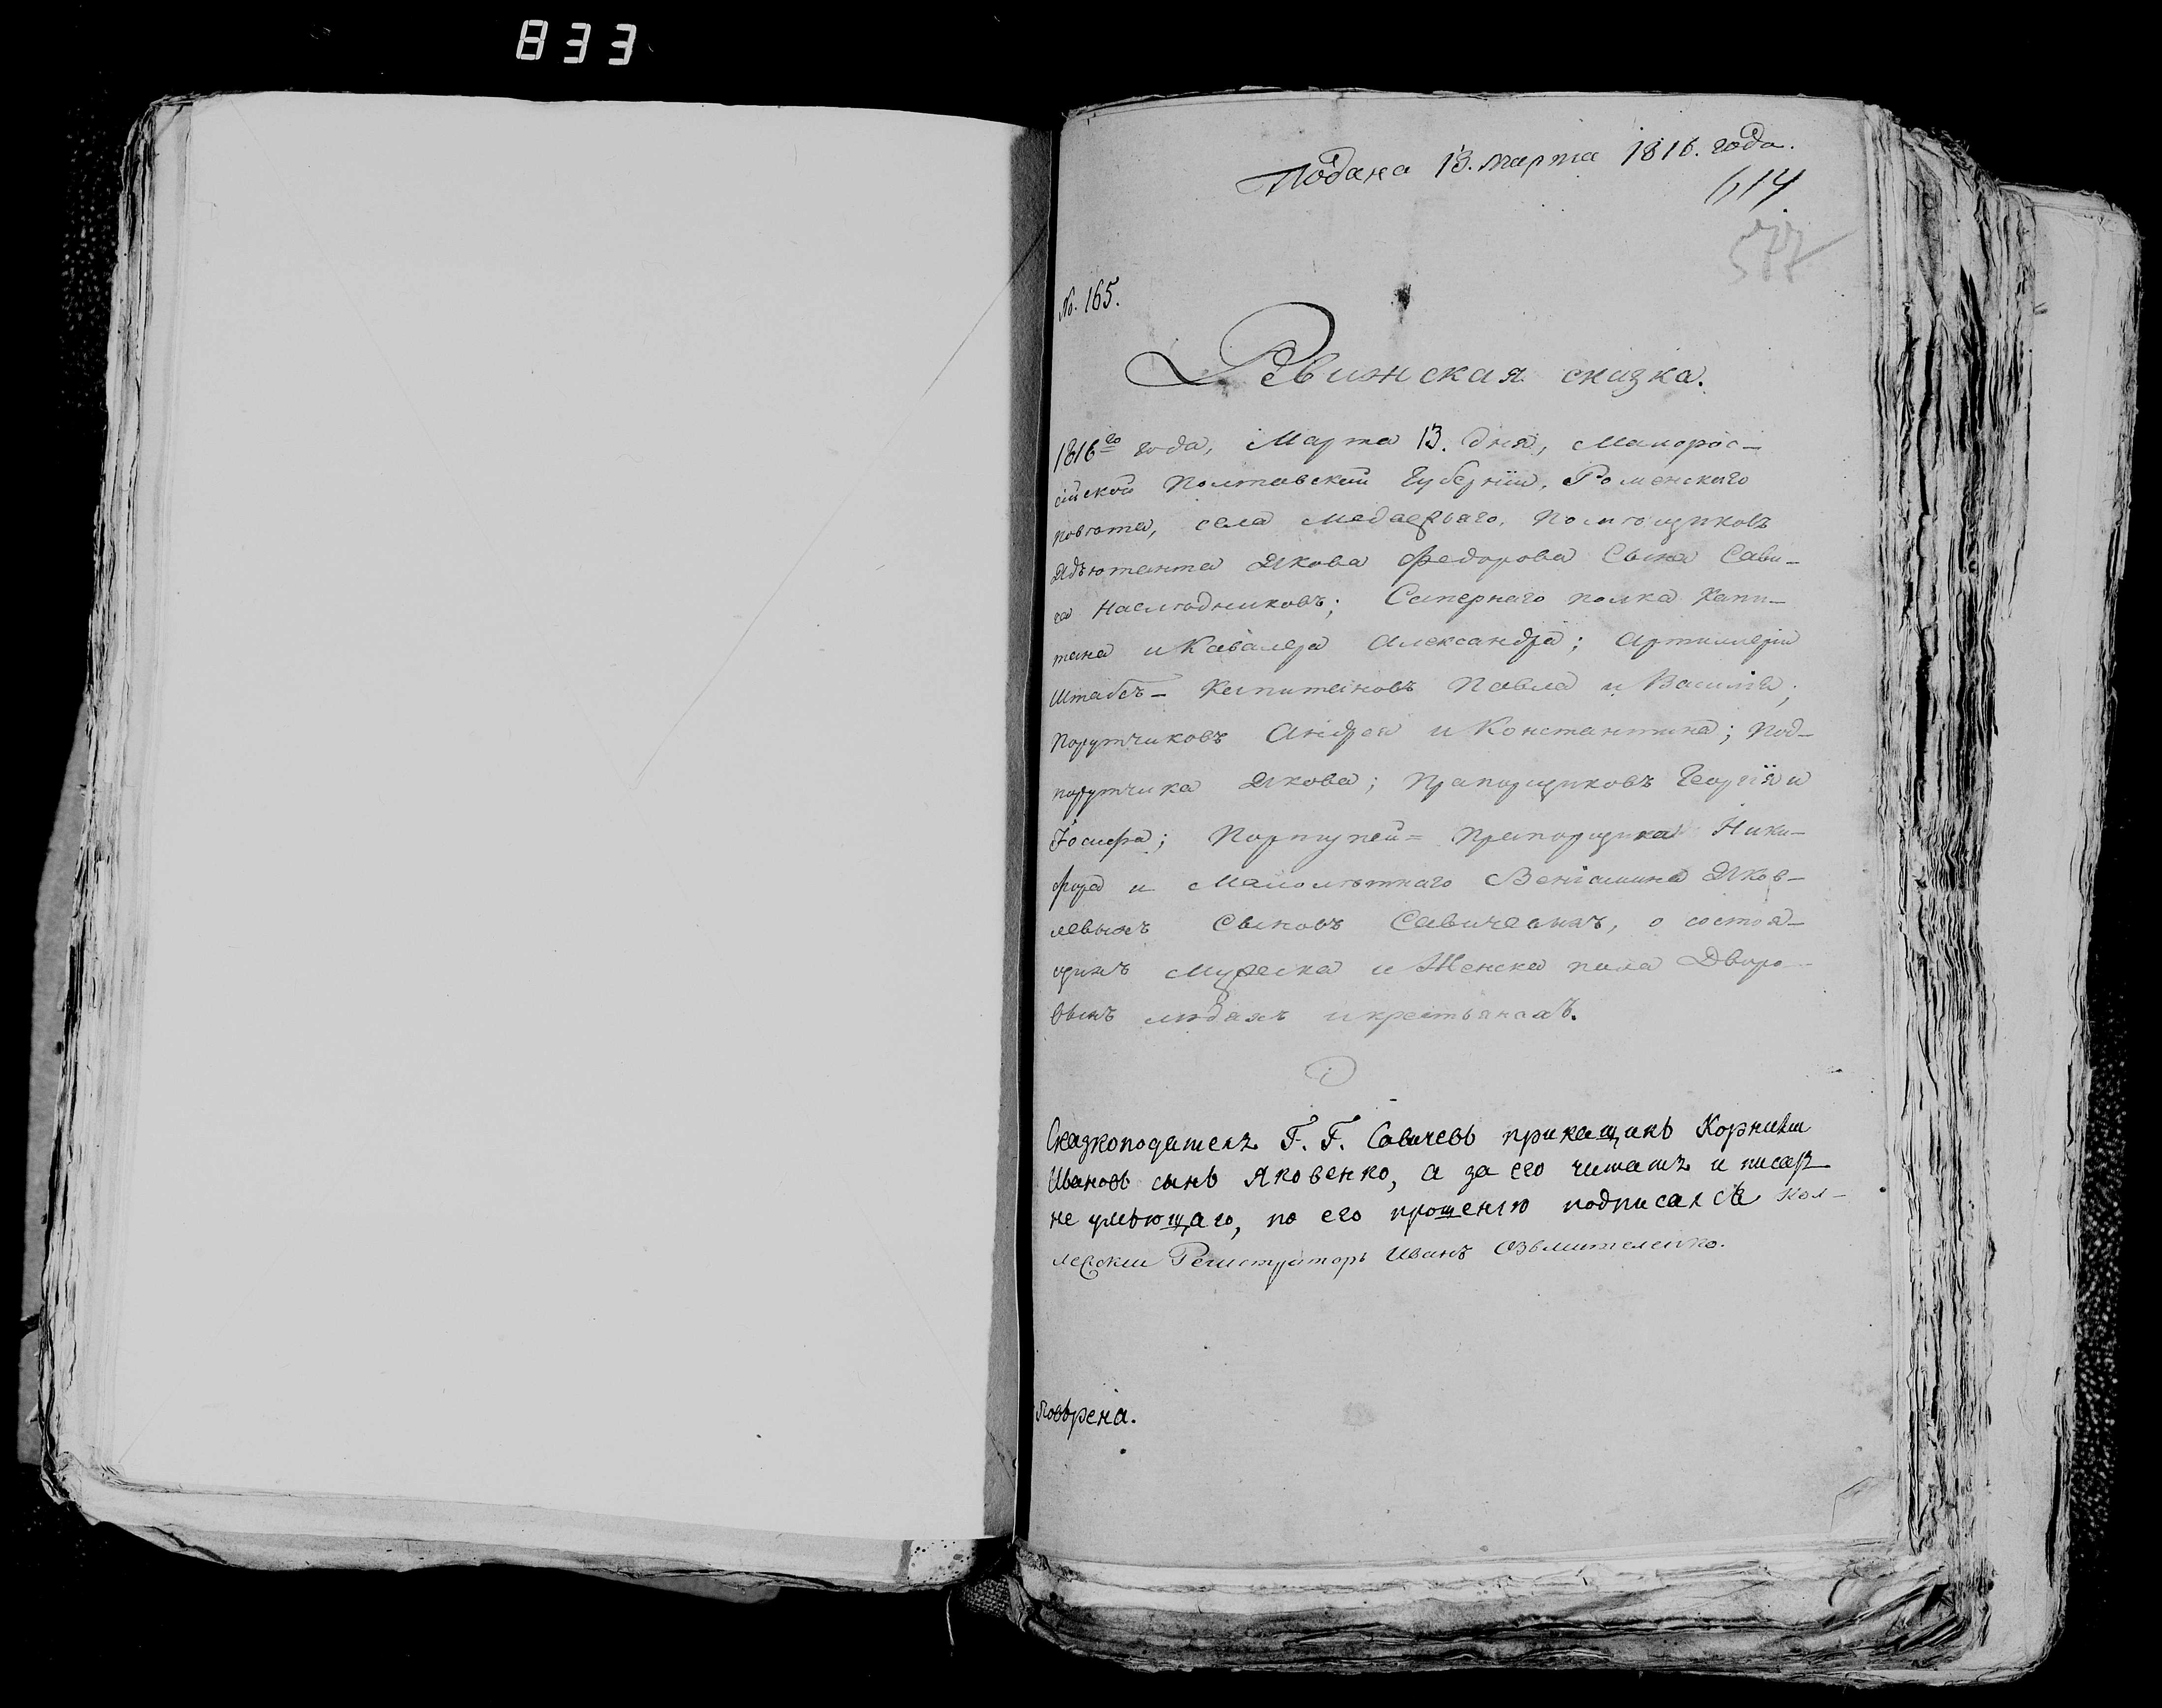 833
Подана 13. марта 1816. года.
614
577
№. 165.
Ревижская сказка.
1816го года, Марта 13. дня, Малорос-
сійской Полтавской Губерніи, Роменскаго
повѣта, села Медвежаго, Помѣщиковъ
Адъютанта Якова Федорова Сына Сави-
ча Наслѣдниковъ; Сапернаго полка Капи-
тана и Кавалера Александра; Артиллеріи
Штабсъ- Капитановъ Павла и Василія;
Порутчиковъ Андрея и Константина; Под-
порутчика Якова; Прапорщиковъ Георгія и
Іосифа; Портупей= Прапорщика Ники-
фора и Малолѣтнаго Веніамина Яков-
левыхъ Сыновъ Савичевыхъ, о состоя-
щихъ мужеска и Женска пола Дворо-
выхъ людяхъ и крестьянахъ.
Сказкоподатель Г. Г. Савичевъ прикащикъ Корнилій
Ивановъ сынъ Яковенко, а за его читать и писать
не умѣющаго, по его прошенію подписался Кол-
лежскій Регистраторъ Иванъ
повѣрена.